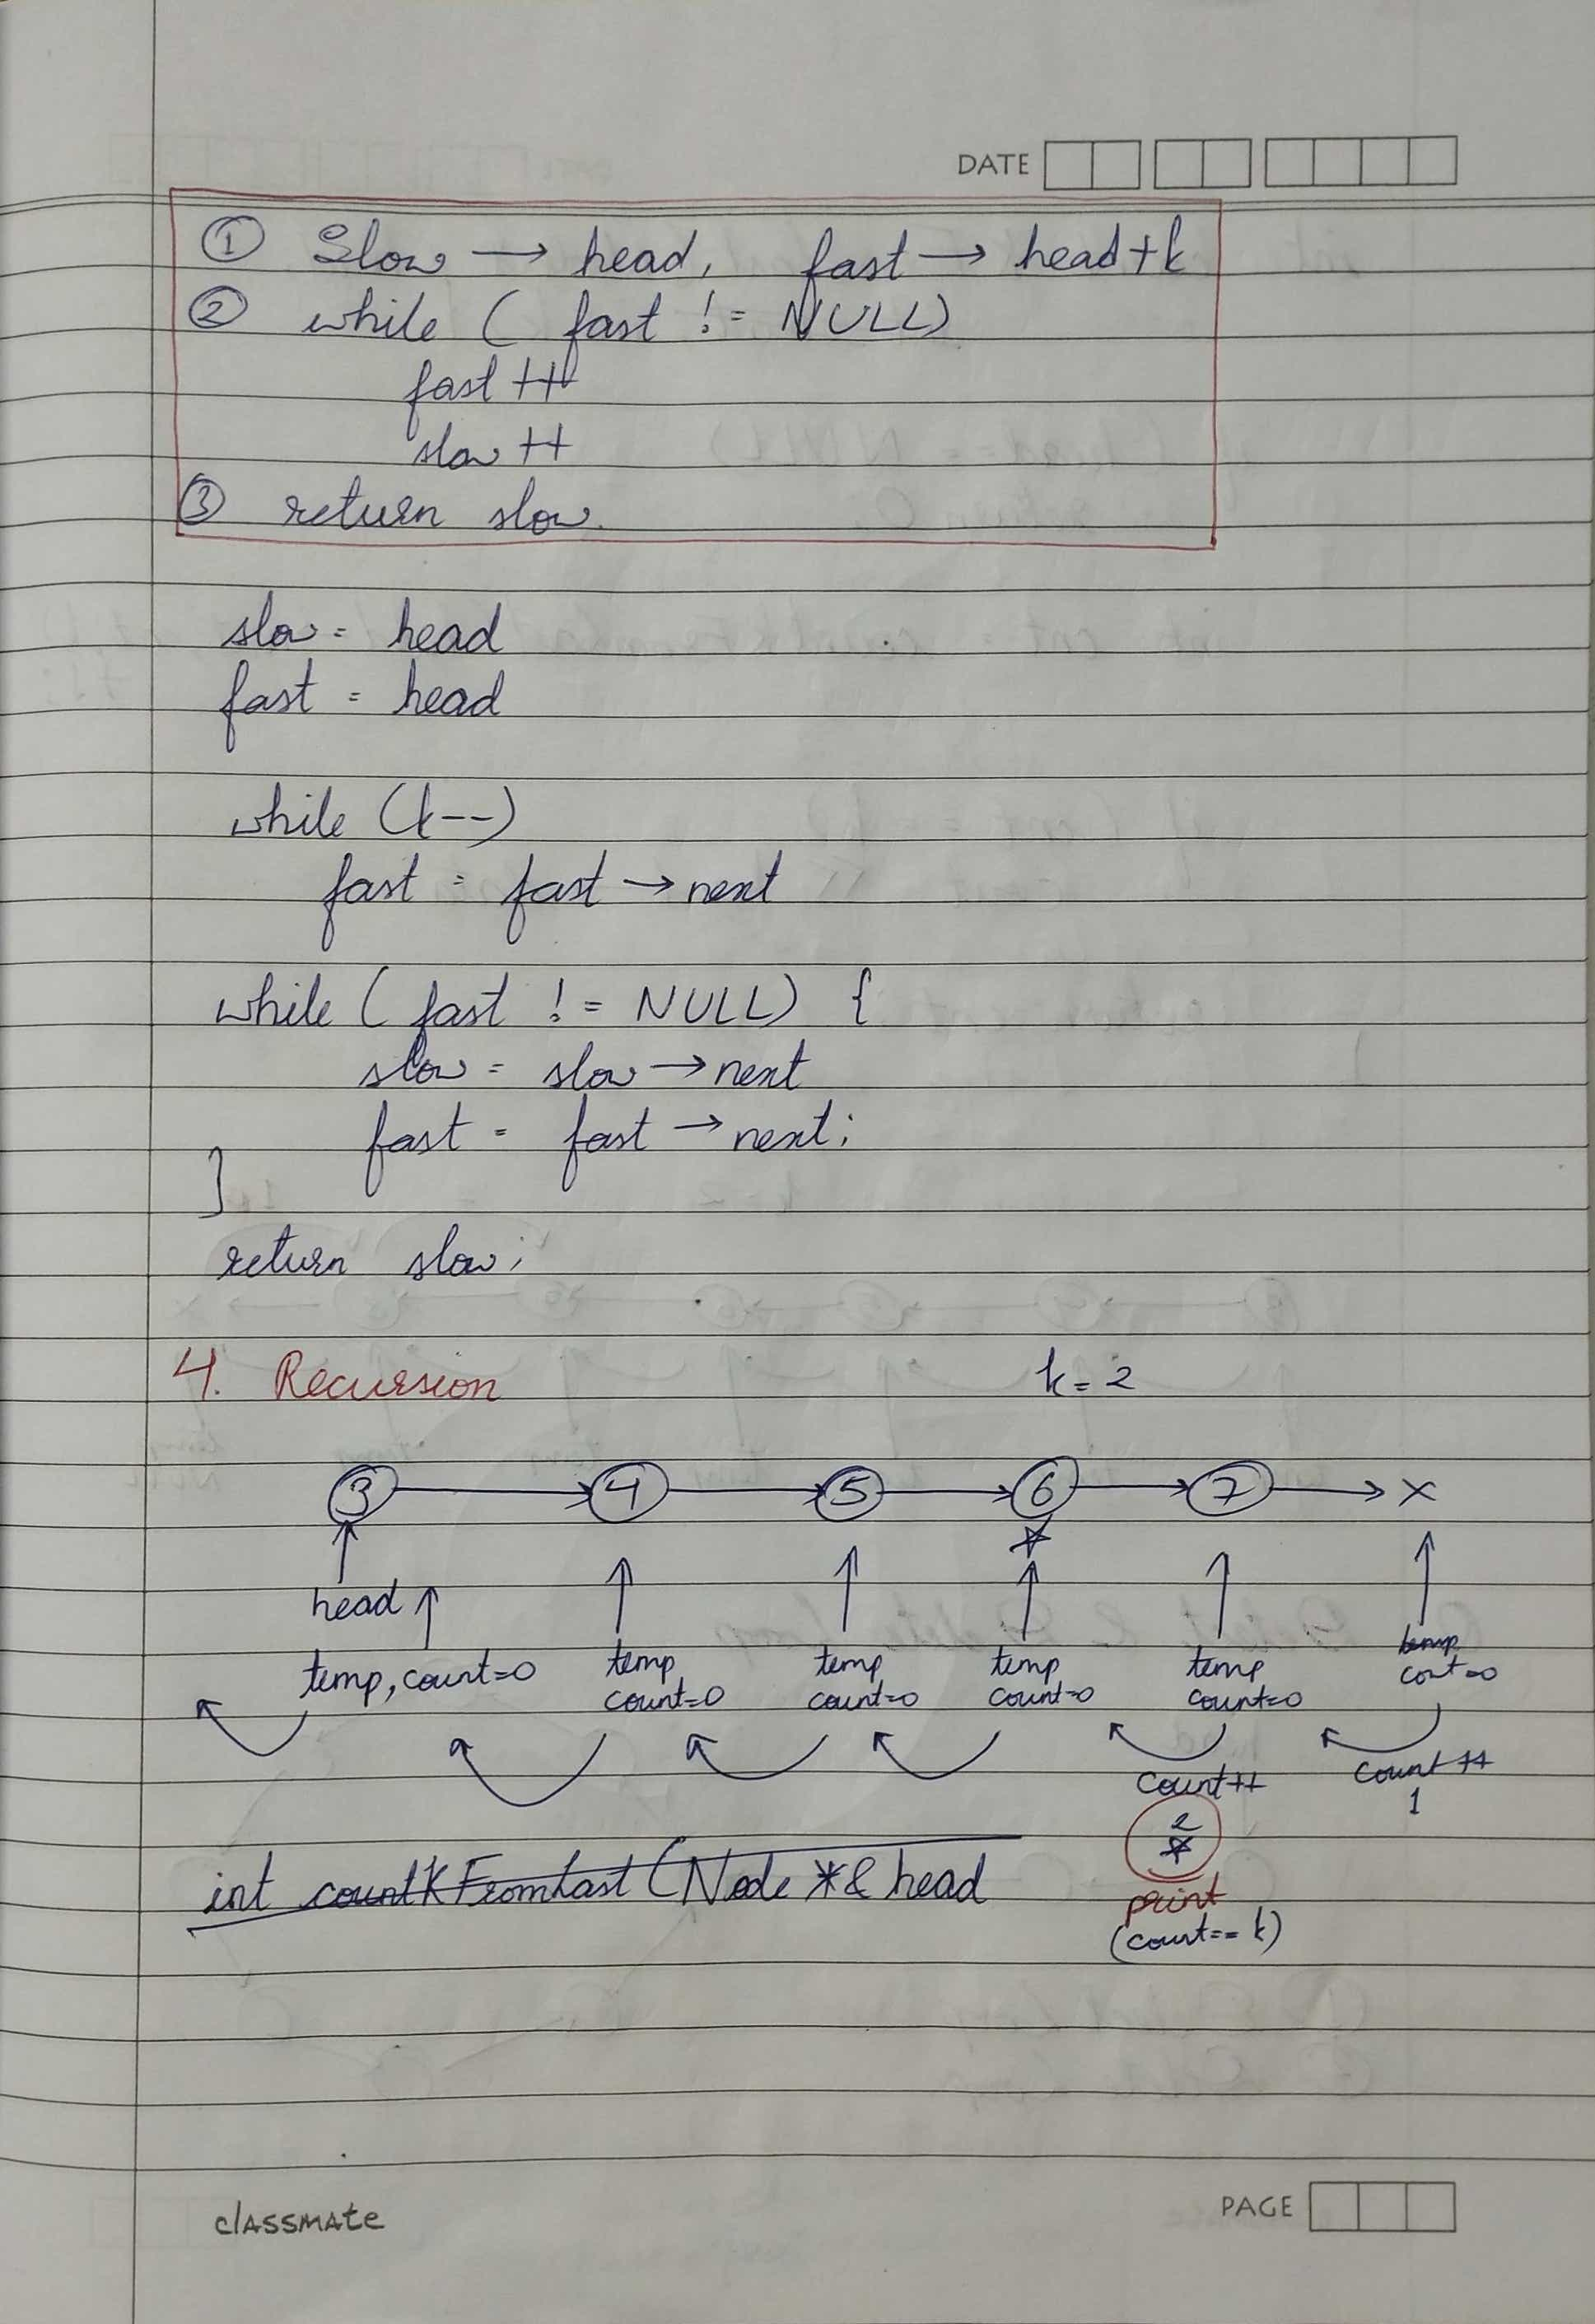 DATE
① Slow → head, fast → head+k
② while ( fast != NULL)
fast ++
slow ++
③ return slow.
slow = head
fast = head
while (k--)
fast = fast → next
while ( fast != NULL) {
slow = slow → next
fast = fast → next;
}
return slow;
4. Recursion k=2
3 → 4 → 5 → 6 → 7 → x
head
temp, count=0 temp temp temp temp temp
count=0 count=0 count=0 count=0 cont=0
count++ count++
1
2
int countKFromLast (Node *& head
print
(count== k)
classmate PAGE